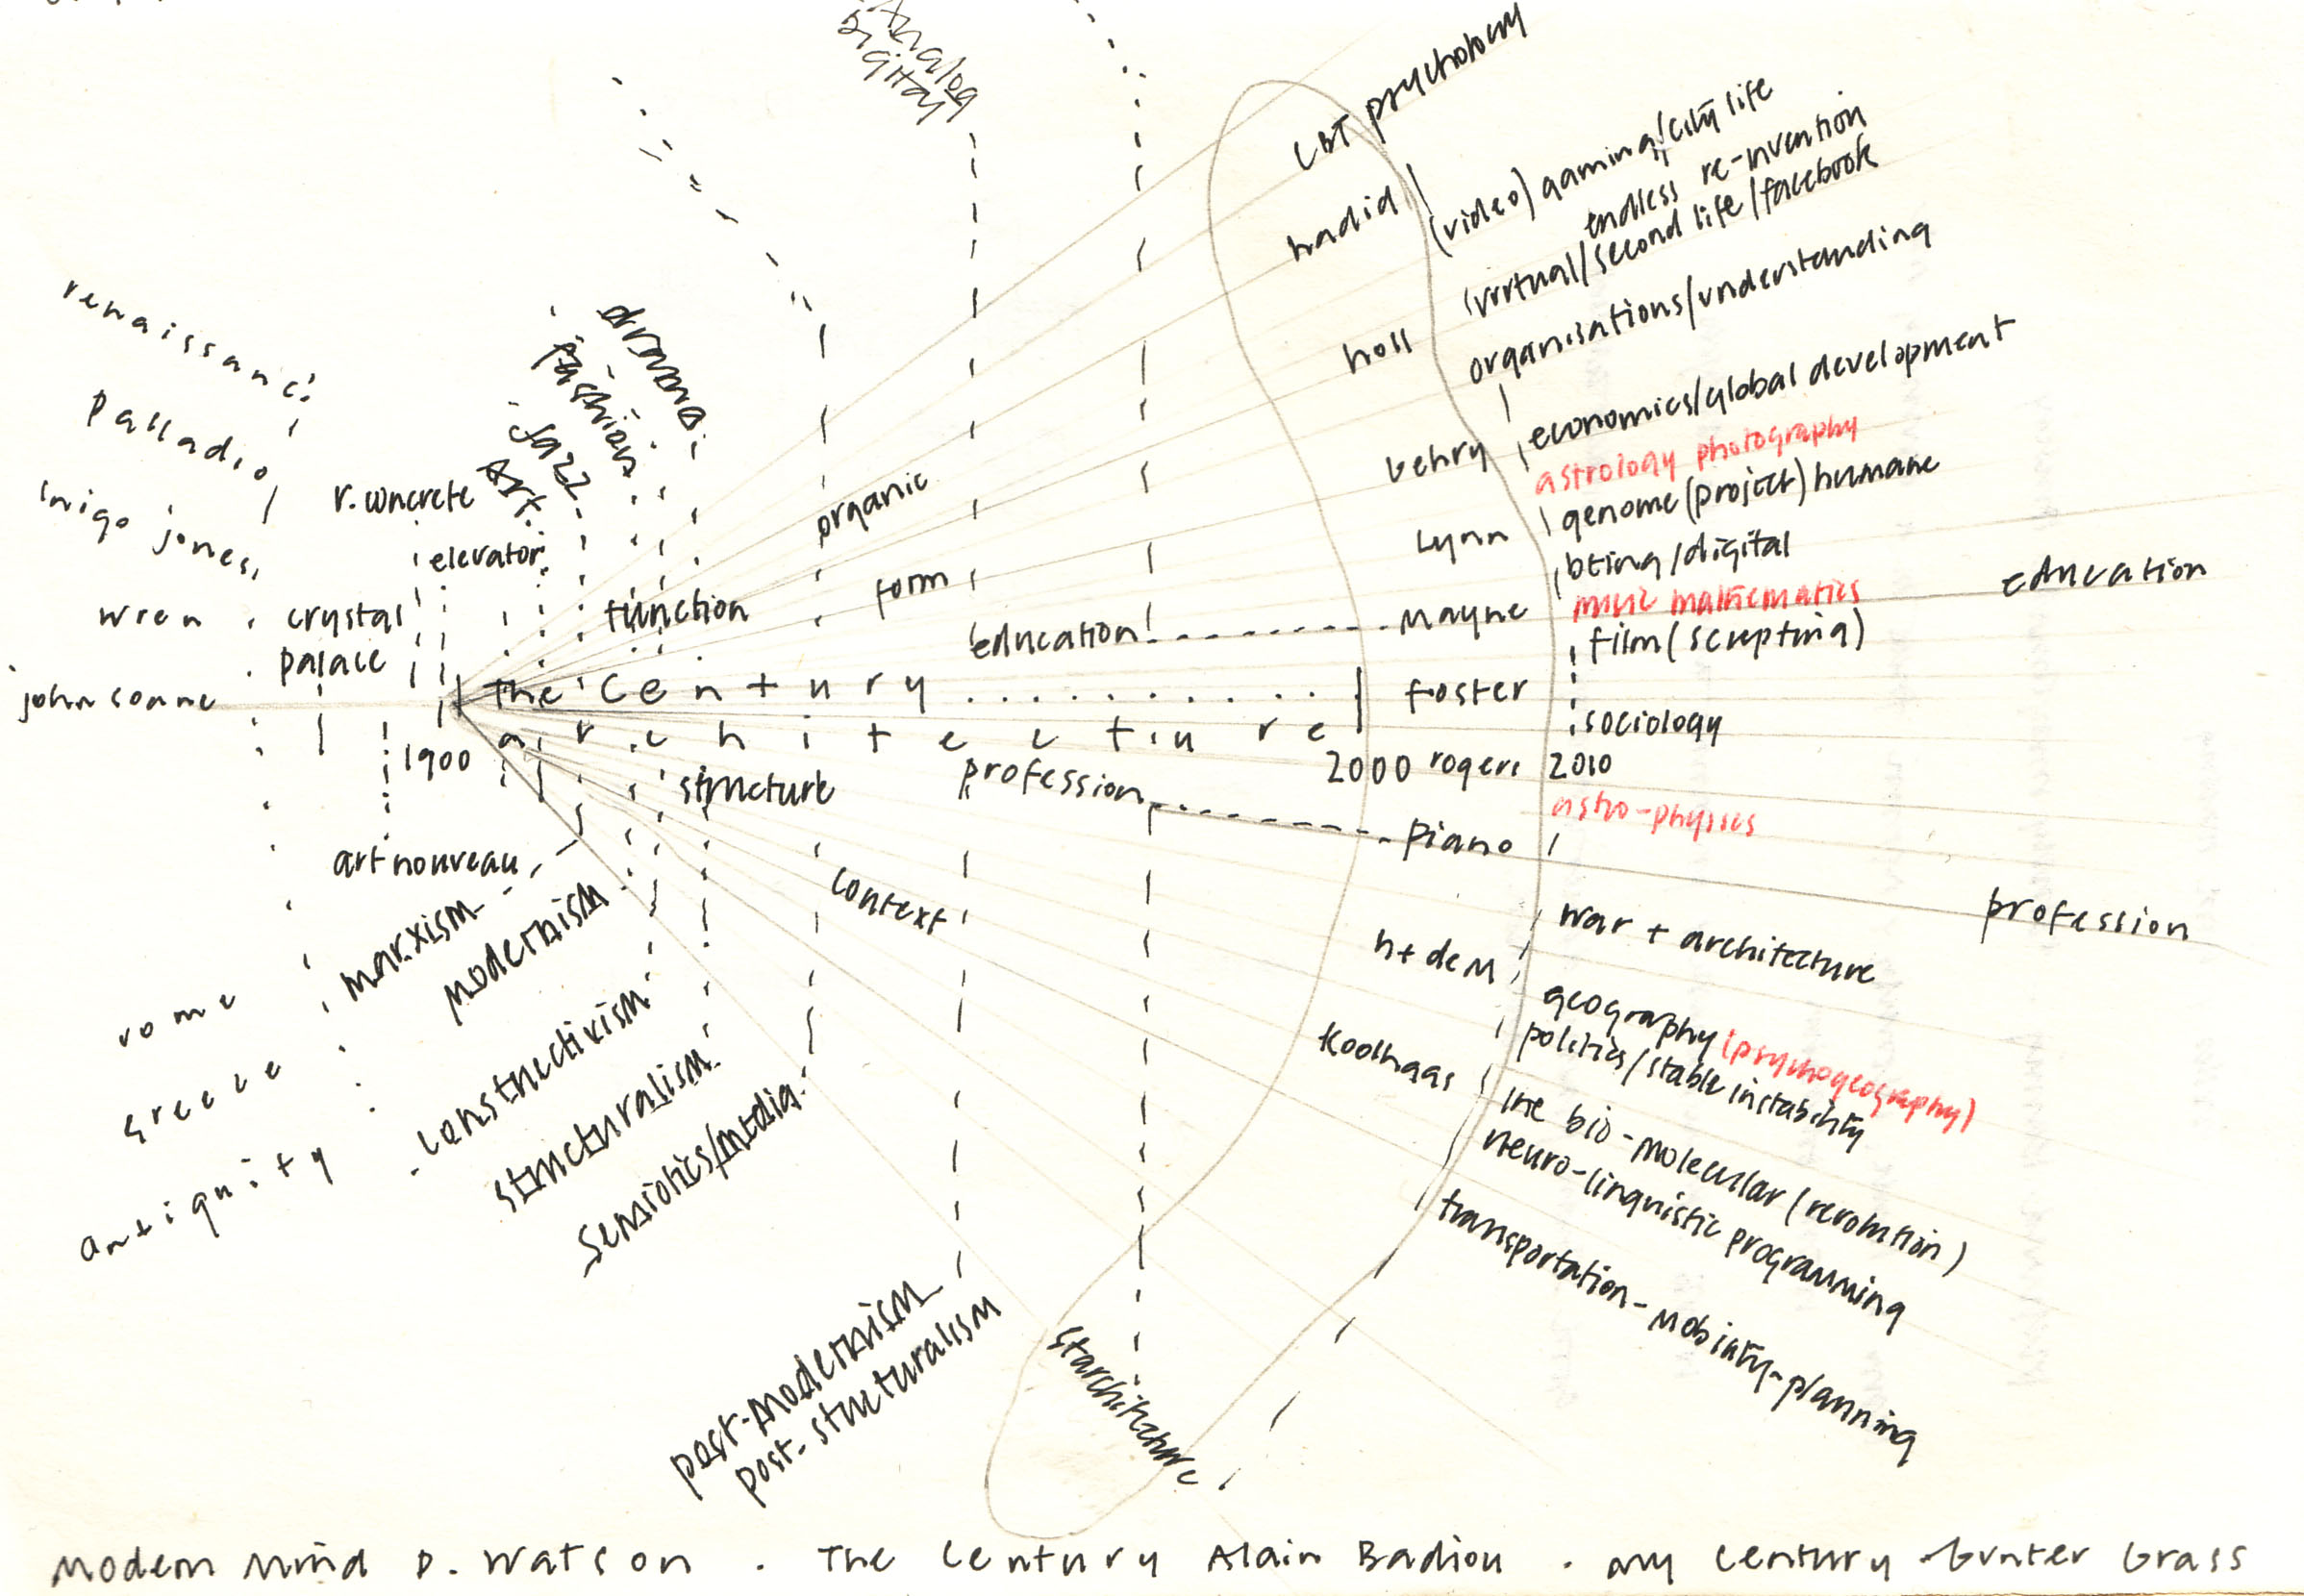 analog
digital
CBT psychology
hadid
(video) gaming/city life
endless re-invention
virtual/second life/facebook
holl
organisations/understanding
gehry
economics/global development
astrology photography
lynn
genome (project) humane
being/digital
mayne
music mathematics
film (scripting)
foster
sociology
2000 rogers 2010
astro-physics
piano
war + architecture
h + deM
geography (psychogeography)
politics/stable instability
koolhaas
the bio-molecular (revolution)
neuro-linguistic programming
transportation-mobility-planning
education
profession
renaissance
palladio
inigo jones
wren
john soane
crystal
palace
r. concrete
elevator
Art
jazz
fashion
drama
function
organic
form
education
the century
architecture
1900
structure
profession
context
art nouveau
marxism
modernism
constructivism
structuralism
semiotics/media
post-modernism
post-structuralism
starchitecture
rome
greece
antiquity
Modern Mind P. Watson . The Century Alain Badiou . my century - Gunter Grass